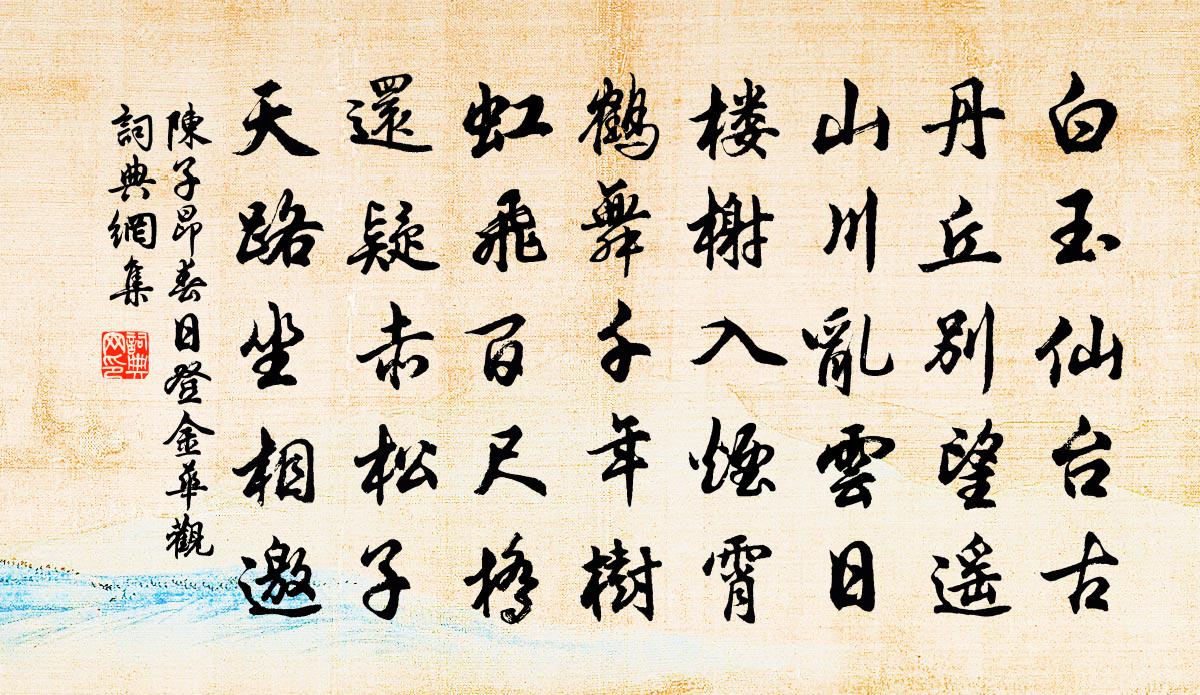 白玉仙台古
丹丘别望遥
山川亂雲日
楼榭入煙霄
鶴舞千年樹
虹飛百尺橋
還疑赤松子
天路坐相邀
陳子昂春日登金華觀
詞典網集
詞典